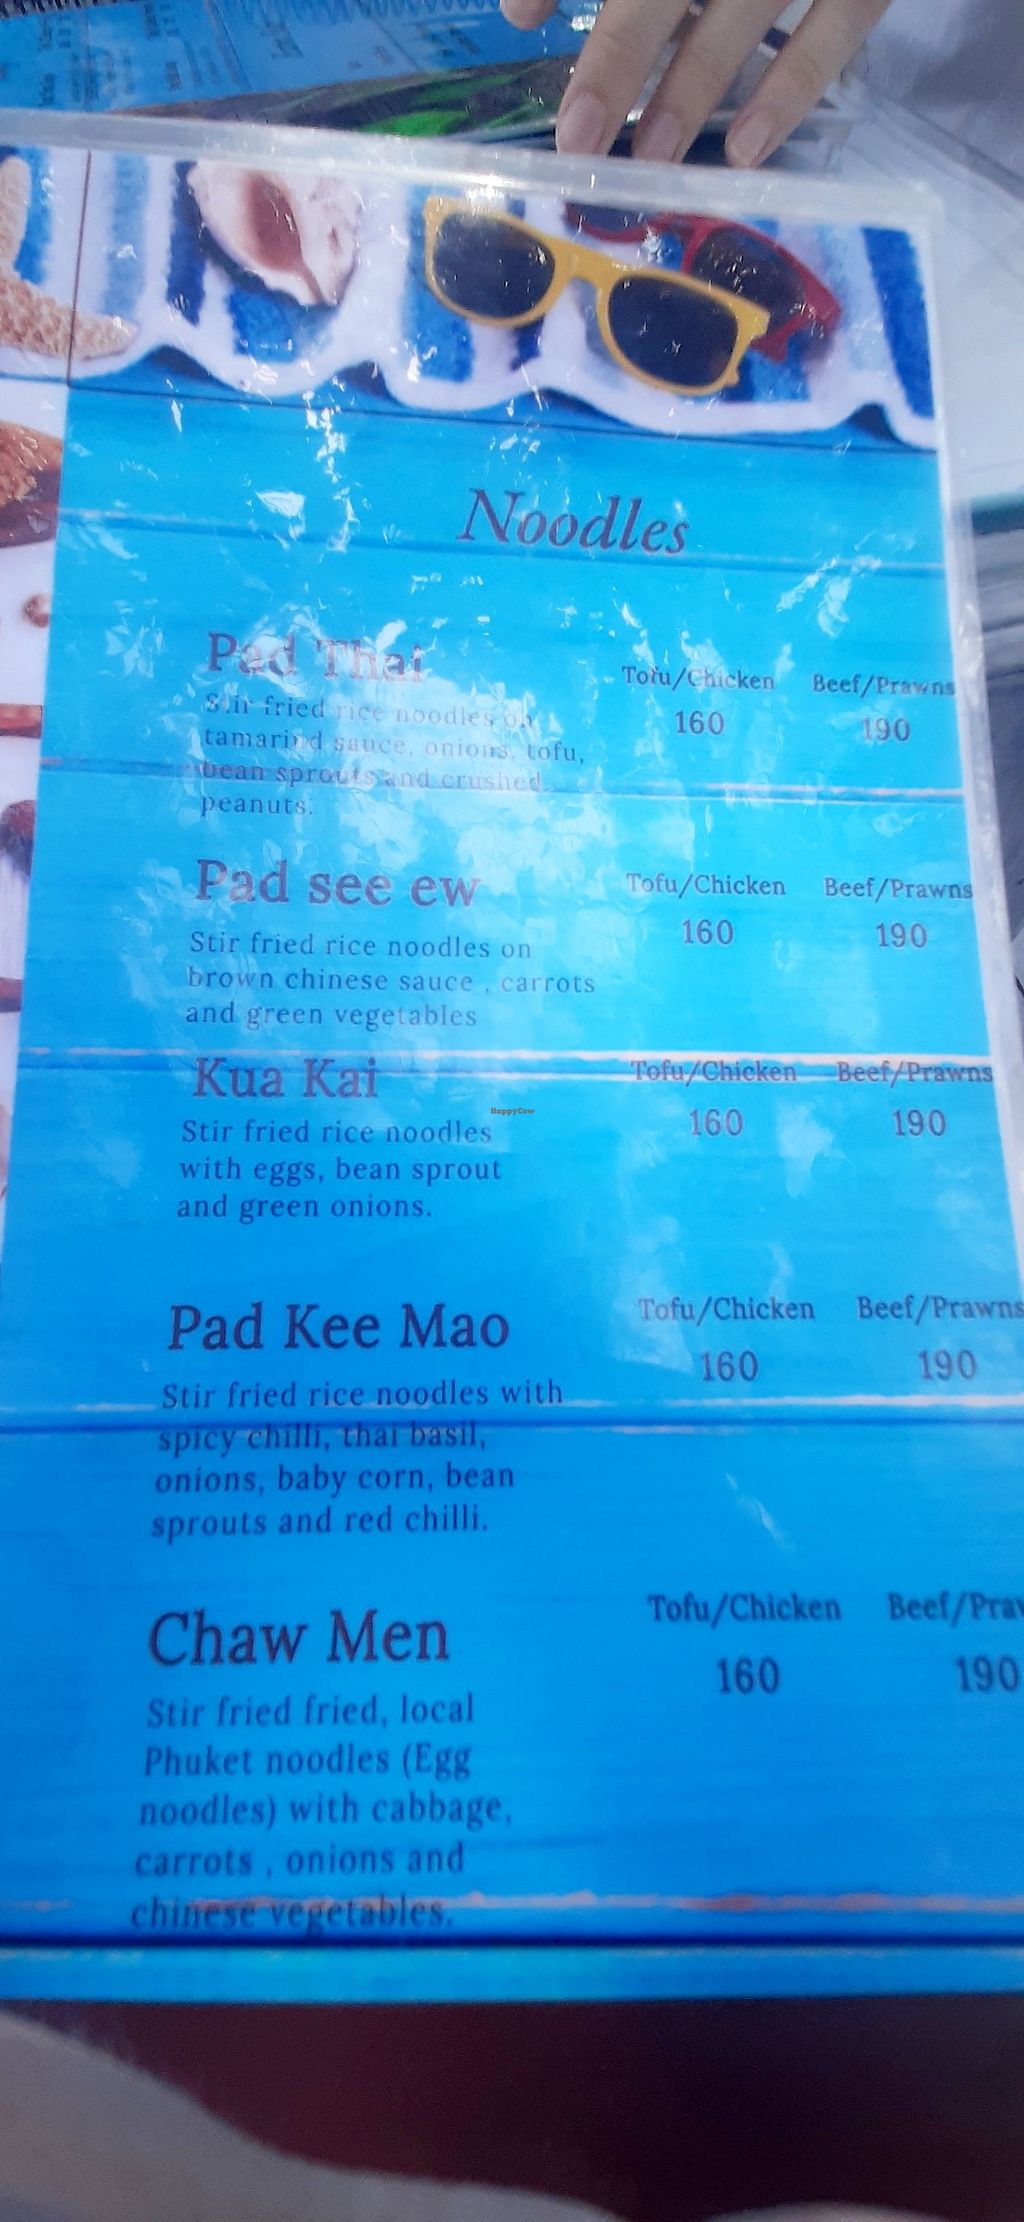 Noodles
Pad Thai
Tofu/Chicken Beef/Prawns
160 190
Stir fried rice noodles on
tamarind sauce, onions, tofu,
bean sprouts and crushed
peanuts.
Pad see ew
Tofu/Chicken Beef/Prawns
160 190
Stir fried rice noodles on
brown chinese sauce , carrots
and green vegetables
Kua Kai
Tofu/Chicken Beef/Prawns
160 190
Stir fried rice noodles
with eggs, bean sprout
and green onions.
HappyCow
Pad Kee Mao
Tofu/Chicken Beef/Prawns
160 190
Stir fried rice noodles with
spicy chilli, thai basil,
onions, baby corn, bean
sprouts and red chilli.
Chaw Men
Tofu/Chicken Beef/Praw
160 190
Stir fried fried, local
Phuket noodles (Egg
noodles) with cabbage,
carrots , onions and
chinese vegetables.